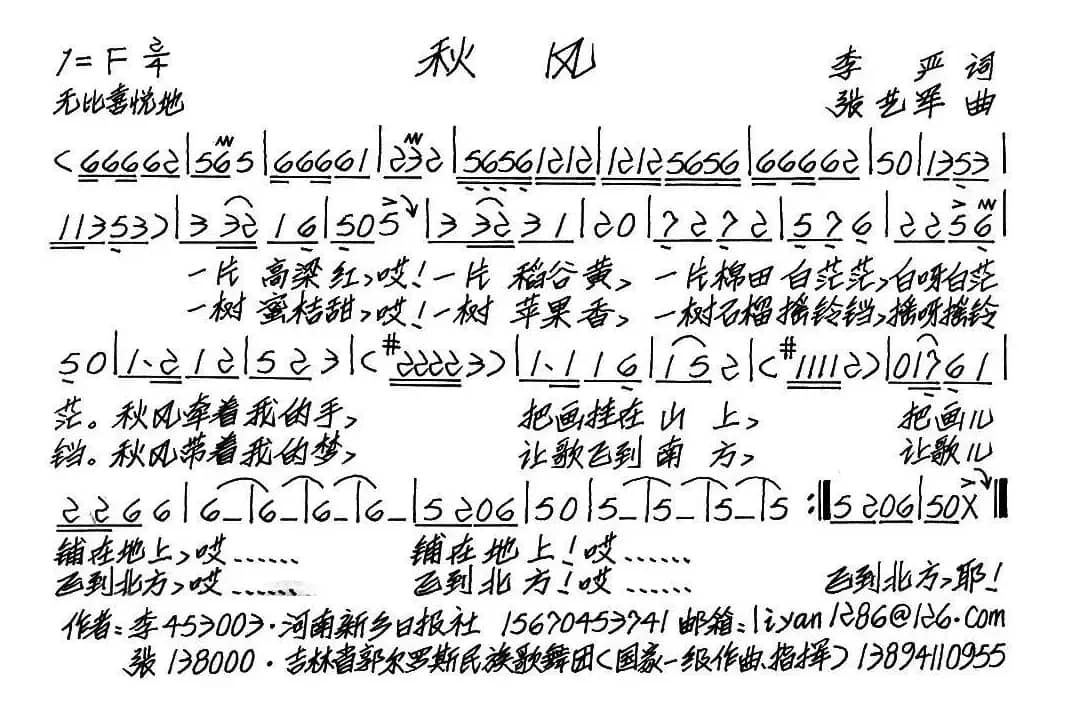 1=F 2/4 秋 风 李 严 词
无比喜悦地 张艺军 曲
(66662|565|66661|232|56561212|12125656|66662|50|1353|
11353)|3 32 1 6|505|3 32 3 1|20|7272|576|2256|
一片 高梁红,哎!一片 稻谷黄, 一片棉田 白茫茫,白呀白茫
一树 蜜桔甜,哎!一树 苹果香, 一树石榴摇铃铛,摇呀摇铃
50|1·212|523|(#22223)|1·116|152|(#11112)|01761|
茫。秋风牵着我的手, 把画挂在山上, 把画儿
铛。秋风带着我的梦, 让歌飞到南方, 让歌儿
2266|6-|6-|6-|6-|5206|50|5-|5-|5-|5 :‖5206|50X‖
铺在地上,哎…… 铺在地上!哎……
飞到北方,哎…… 飞到北方!哎…… 飞到北方,耶!
作者:李453003·河南新乡日报社 15670453741邮箱:liyan1286@126.com
张138000·吉林省郭尔罗斯民族歌舞团(国家一级作曲、指挥)13894110955